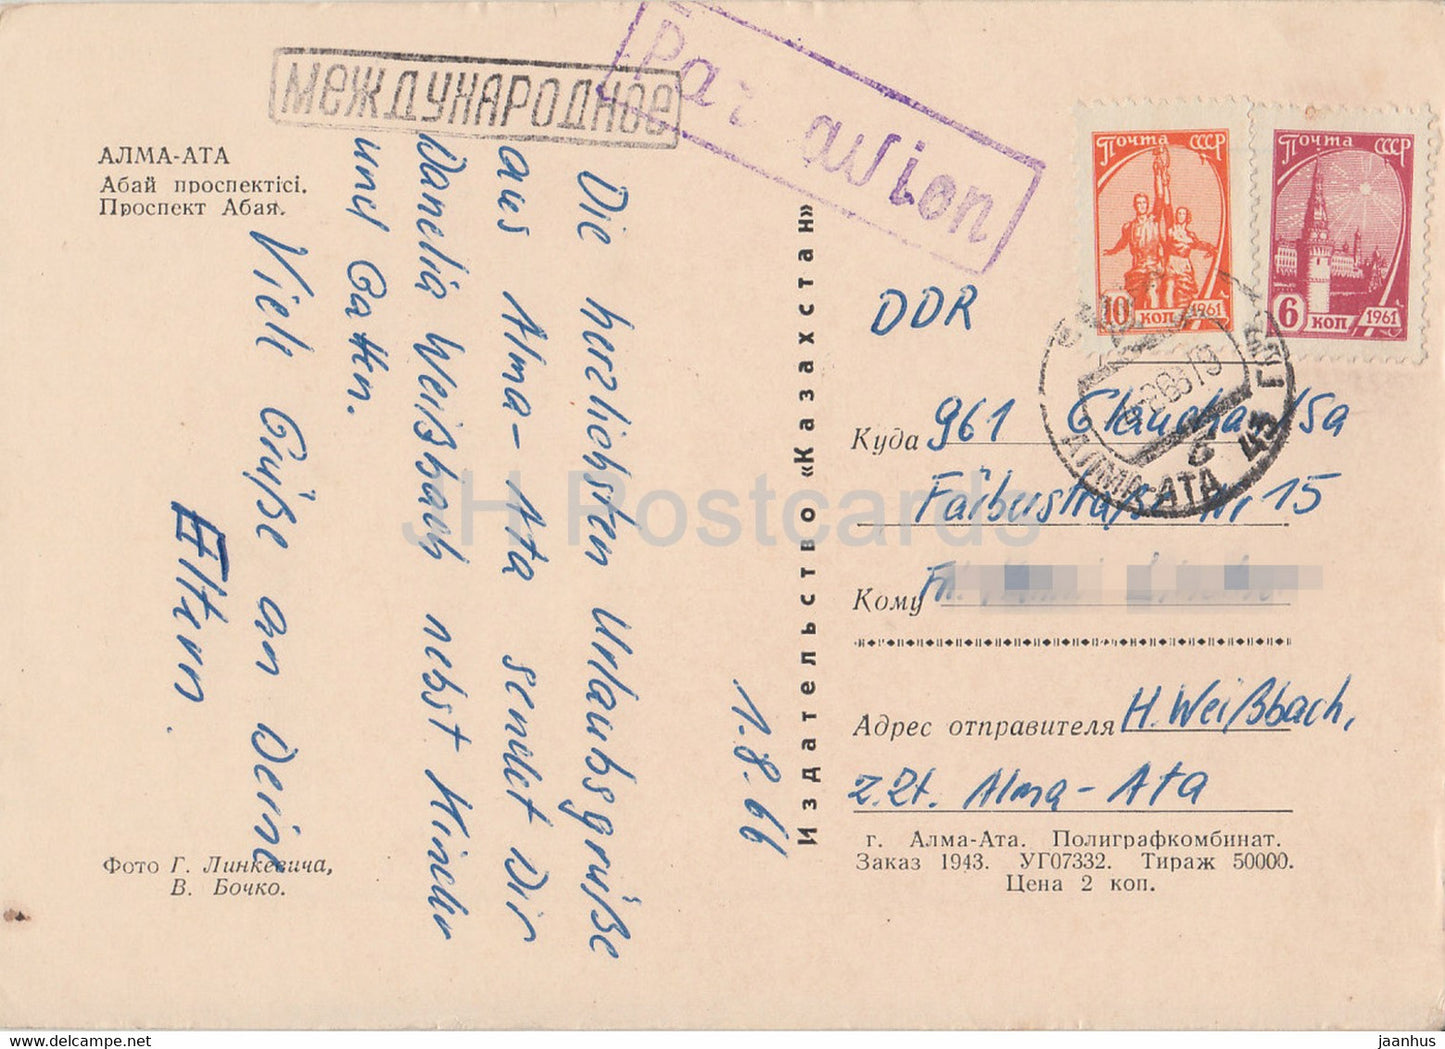 МЕЖДУНАРОДНОЕ
Par avion
АЛМА-АТА
Абай проспектісі.
Проспект Абая.
Die herzliebsten Urlaubsgrüße
aus Alma-Ata sendet Dir
Danelia Weißbach nebst Kinder
und Gattn.
Viele Grüße an Deine
Eltern.
1.8.66
Фото Г. Линкевича,
В. Бочко.
Издательство «Казахстан»
Почта СССР
10 коп 1961
Почта СССР
6 коп 1961
АЛМА-АТА 43
DDR
Куда 961 Glauchau/Sa
Färberstraße Nr 15
Кому
Адрес отправителя H. Weißbach,
z.Zt. Alma-Ata
г. Алма-Ата. Полиграфкомбинат.
Заказ 1943. УГ07332. Тираж 50000.
Цена 2 коп.
JH Postcards
www.delcampe.net
jaanhus